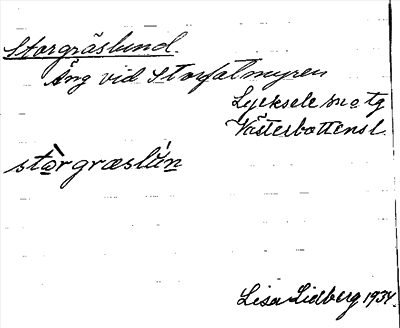 Storgräslund.
Äng vid Storfatmyren
Lycksele sn o tg
Västerbottens l.
stòrgræslún
Lisa Lidberg 1934.